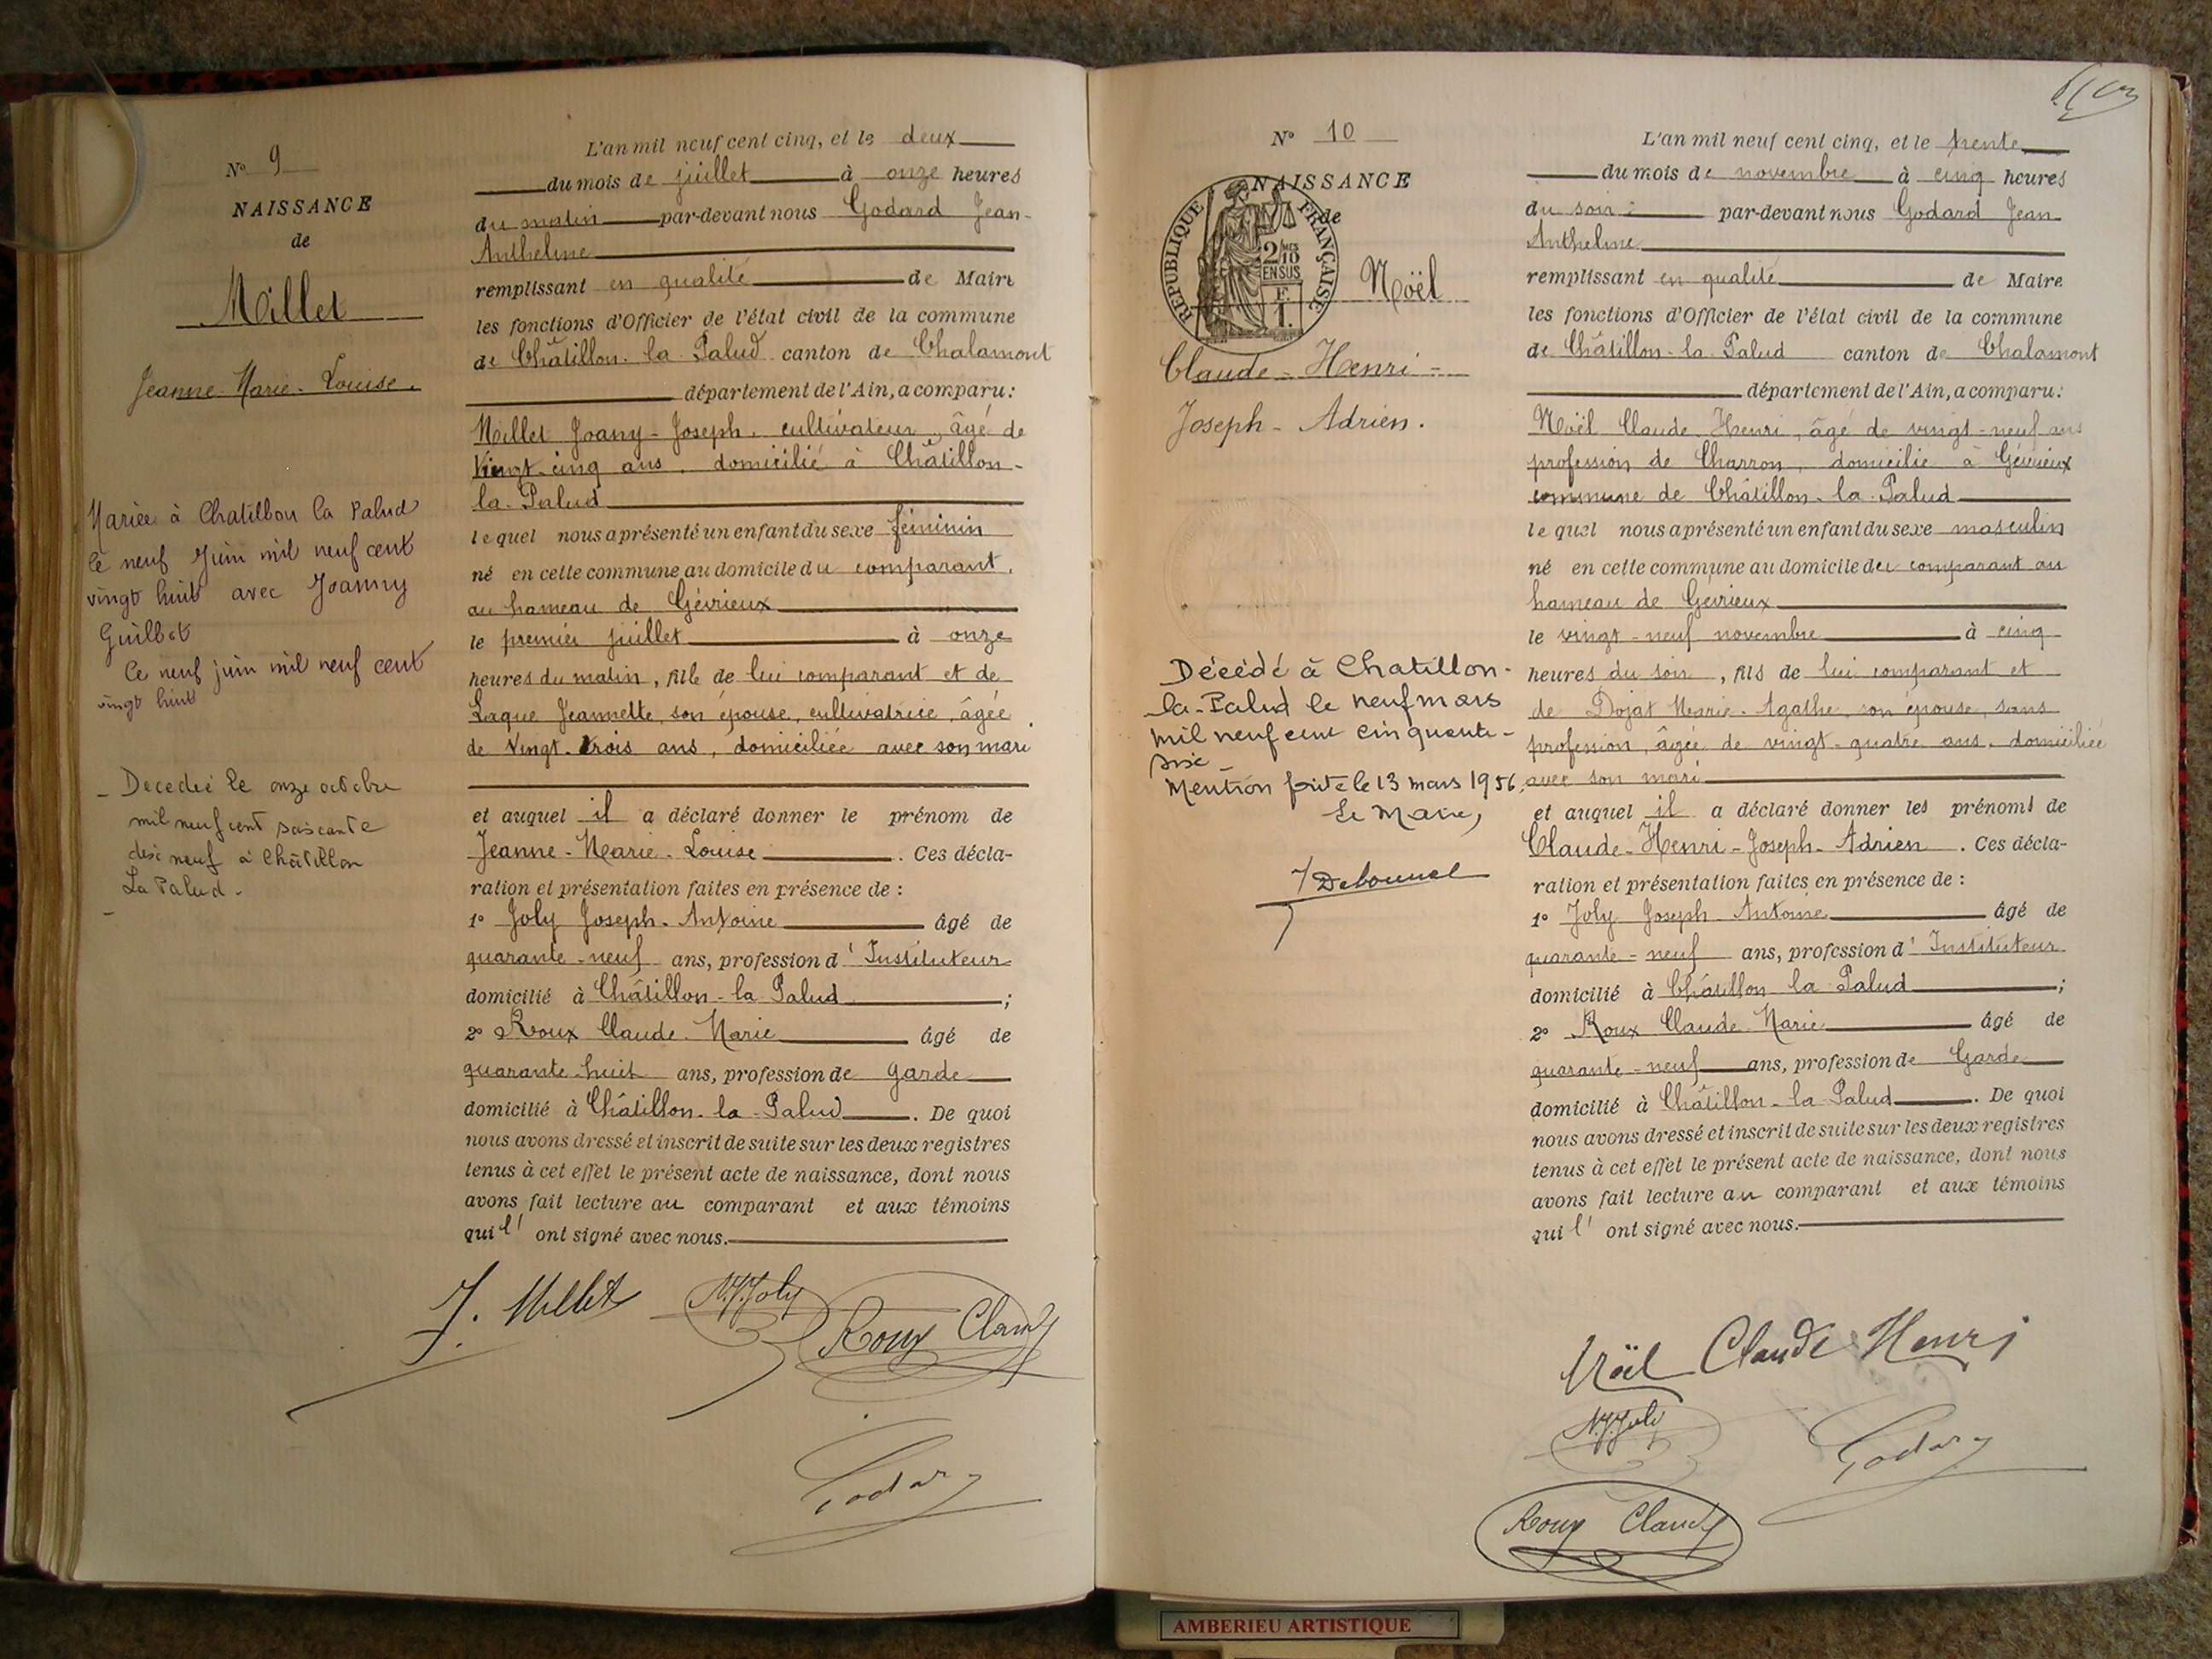 N° 9
NAISSANCE
de
Millet
Jeanne-Marie-Louise.
Mariée à Chatillon la Palud
le neuf Juin mil neuf cent
vingt huit avec Joanny
Guillot
le neuf juin mil neuf cent
vingt huit
- Decedée le onze octobre
mil neuf cent soixante
dix neuf à Châtillon
La Palud -
L'an mil neuf cent cinq, et le deux
du mois de juillet à onze heures
du matin par-devant nous Godard Jean-
Anthelme
remplissant en qualité de Maire
les fonctions d'Officier de l'état civil de la commune
de Châtillon-la-Palud canton de Chalamont
département de l'Ain, a comparu:
Millet Joany-Joseph, cultivateur, âgé de
Vingt-cinq ans, domicilié à Châtillon-
la-Palud
lequel nous a présenté un enfant du sexe féminin
né en cette commune au domicile du comparant,
au hameau de Gévrieux
le premier juillet à onze
heures du matin, fille de lui comparant et de
Laque Jeannette, son épouse, cultivatrice, âgée
de Vingt-trois ans, domiciliée avec son mari
et auquel il a déclaré donner le prénom de
Jeanne-Marie-Louise. Ces décla-
ration et présentation faites en présence de :
1° Joly Joseph-Antoine âgé de
quarante-neuf ans, profession d'Instituteur
domicilié à Châtillon-la Palud ;
2° Roux Claude-Marie âgé de
quarante-huit ans, profession de garde
domicilié à Châtillon-la-Palud. De quoi
nous avons dressé et inscrit de suite sur les deux registres
tenus à cet effet le présent acte de naissance, dont nous
avons fait lecture au comparant et aux témoins
qui l' ont signé avec nous.
J. Millet Joly
Roux Claude
Godard
N° 10
NAISSANCE
de
REPUBLIQUE FRANÇAISE
2/10 MES
EN SUS
F.
1.
Noël
Claude-Henri-
Joseph-Adrien.
Décédé à Chatillon-
la-Palud le neuf mars
mil neuf cent cinquante-
six
Mention faite le 13 mars 1956,
Le Maire,
L'an mil neuf cent cinq, et le trente
du mois de novembre à cinq heures
du soir: par-devant nous Godard Jean
Anthelme
remplissant en qualité de Maire
les fonctions d'Officier de l'état civil de la commune
de Châtillon-la-Palud canton de Chalamont
département de l'Ain, a comparu:
Noël Claude-Henri, âgé de vingt-neuf ans
profession de Charron, domicilié à Gévrieux
commune de Châtillon-la-Palud
lequel nous a présenté un enfant du sexe masculin
né en cette commune au domicile du comparant au
hameau de Gevrieux
le vingt-neuf novembre à cinq
heures du soir, fils de lui comparant et
de Dojat Marie-Agathe, son épouse, sans
profession, âgée de vingt-quatre ans, domiciliée
avec son mari
et auquel il a déclaré donner les prénoms de
Claude-Henri-Joseph-Adrien. Ces décla-
ration et présentation faites en présence de :
1° Joly Joseph-Antoine âgé de
quarante-neuf ans, profession d'Instituteur
domicilié à Châtillon-la Palud ;
2° Roux Claude-Marie âgé de
quarante-neuf ans, profession de Garde
domicilié à Châtillon-la-Palud. De quoi
nous avons dressé et inscrit de suite sur les deux registres
tenus à cet effet le présent acte de naissance, dont nous
avons fait lecture au comparant et aux témoins
qui l' ont signé avec nous.
Noël Claude Henri
Joly
Godard
Roux Claude
AMBERIEU ARTISTIQUE